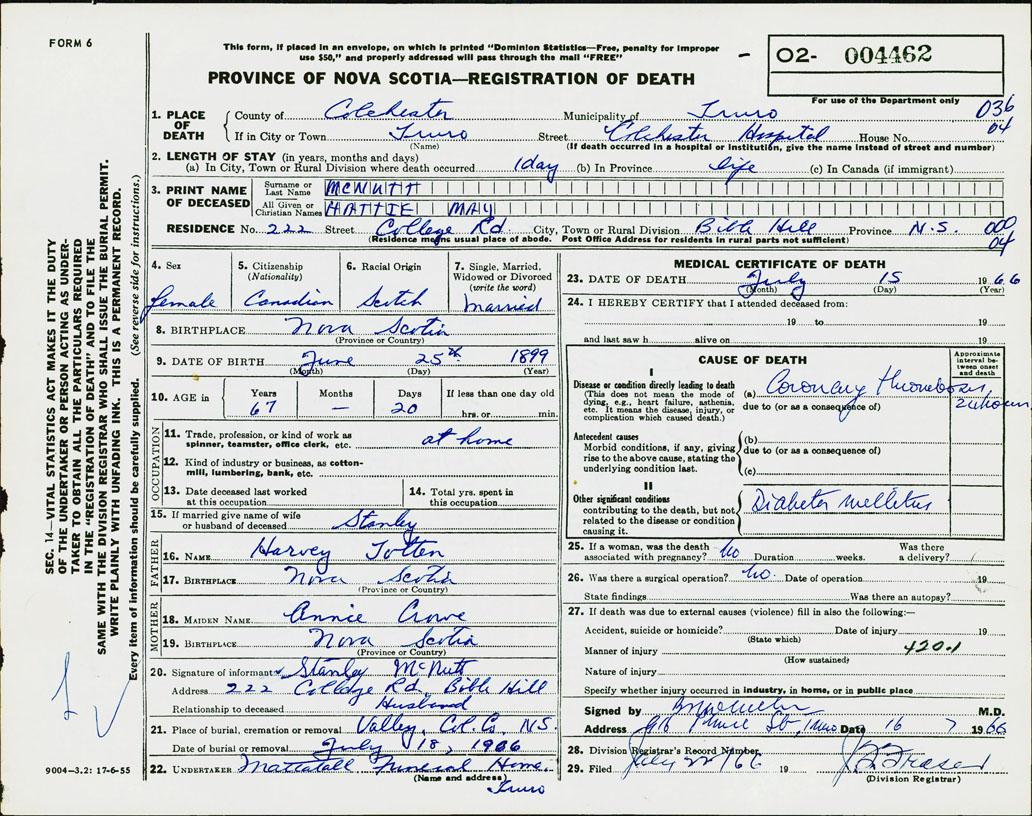 FORM 6
This form, if placed in an envelope, on which is printed "Dominion Statistics—Free, penalty for improper
use $50," and properly addressed will pass through the mail "FREE"
- O2- 004462
PROVINCE OF NOVA SCOTIA—REGISTRATION OF DEATH
For use of the Department only
036
04
1. PLACE OF DEATH
County of Colchester Municipality of Truro
If in City or Town Truro Street Colchester Hospital House No.
(Name) (If death occurred in a hospital or institution, give the name instead of street and number)
2. LENGTH OF STAY (in years, months and days)
(a) In City, Town or Rural Division where death occurred 1 day (b) In Province life (c) In Canada (if immigrant)
3. PRINT NAME OF DECEASED
Surname or Last Name MCNUTT
All Given or Christian Names HATTIE MAY
RESIDENCE No. 222 Street College Rd. City, Town or Rural Division Bible Hill Province N.S. 000
04
(Residence means usual place of abode. Post Office Address for residents in rural parts not sufficient)
4. Sex female
5. Citizenship (Nationality) Canadian
6. Racial Origin Scotch
7. Single, Married, Widowed or Divorced (write the word) Married
8. BIRTHPLACE Nova Scotia
(Province or Country)
9. DATE OF BIRTH June 25th 1899
(Month) (Day) (Year)
10. AGE in Years 67 Months — Days 20 If less than one day hrs. or min.
OCCUPATION
11. Trade, profession, or kind of work as spinner, teamster, office clerk, etc. at home
12. Kind of industry or business, as cotton-mill, lumbering, bank, etc.
13. Date deceased last worked at this occupation
14. Total yrs. spent in this occupation
15. If married give name of wife or husband of deceased Stanley
FATHER
16. NAME Harvey Totten
17. BIRTHPLACE Nova Scotia
(Province or Country)
MOTHER
18. MAIDEN NAME Annie Crowe
19. BIRTHPLACE Nova Scotia
(Province or Country)
20. Signature of informant Stanley McNutt
Address 222 College Rd, Bible Hill
Relationship to deceased Husband
21. Place of burial, cremation or removal Valley, Col. Co. N.S.
Date of burial or removal July 18, 1966
22. UNDERTAKER Mattatall Funeral Home.
(Name and address)
Truro
MEDICAL CERTIFICATE OF DEATH
23. DATE OF DEATH July 15 1966
(Month) (Day) (Year)
24. I HEREBY CERTIFY that I attended deceased from:
19 to 19
and last saw h alive on 19
CAUSE OF DEATH
Approximate interval between onset and death
I
Disease or condition directly leading to death
(This does not mean the mode of dying, e.g., heart failure, asthenia, etc. It means the disease, injury, or complication which caused death.)
(a) Coronary thrombosis
due to (or as a consequence of)
24 hours
Antecedent causes
Morbid conditions, if any, giving rise to the above cause, stating the underlying condition last.
(b)
due to (or as a consequence of)
(c)
II
Other significant conditions
contributing to the death, but not related to the disease or condition causing it.
Diabetes mellitus
25. If a woman, was the death associated with pregnancy? No Duration weeks. Was there a delivery?
26. Was there a surgical operation? No. Date of operation 19
State findings Was there an autopsy?
27. If death was due to external causes (violence) fill in also the following:—
Accident, suicide or homicide? Date of injury 19
(State which)
Manner of injury 420.1
(How sustained)
Nature of injury
Specify whether injury occurred in industry, in home, or in public place
Signed by M.D.
Address Prince St, Truro Date 16 7 1966
28. Division Registrar's Record Number
29. Filed July 22/66 19 Fraser
(Division Registrar)
SEC. 14—VITAL STATISTICS ACT MAKES IT THE DUTY
OF THE UNDERTAKER OR PERSON ACTING AS UNDER-
TAKER TO OBTAIN ALL THE PARTICULARS REQUIRED
IN THE "REGISTRATION OF DEATH" AND TO FILE THE
SAME WITH THE DIVISION REGISTRAR WHO SHALL ISSUE THE BURIAL PERMIT.
WRITE PLAINLY WITH UNFADING INK. THIS IS A PERMANENT RECORD.
Every item of information should be carefully supplied. (See reverse side for instructions.)
9004—3.2: 17-6-55